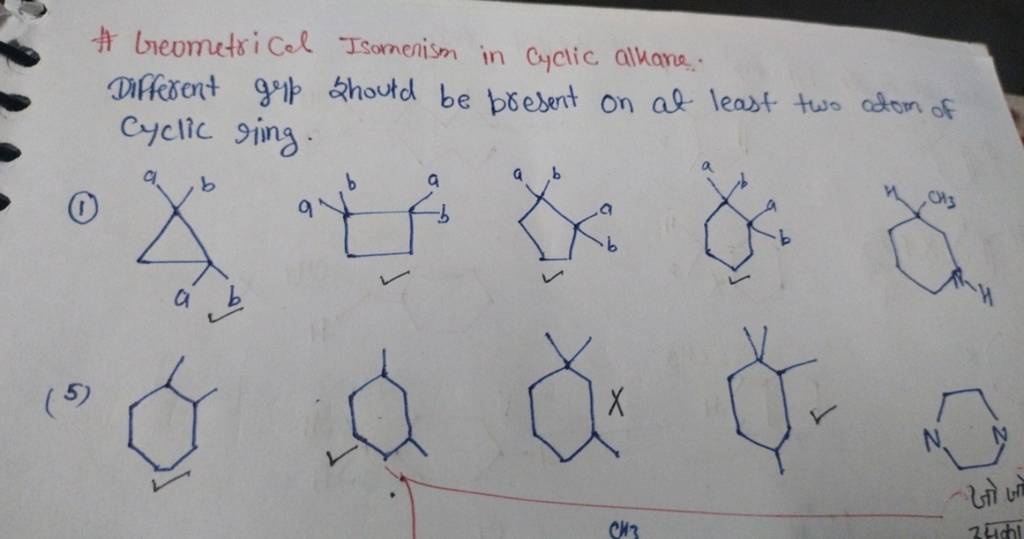 # Geometrical Isomerism in Cyclic alkane.
Different grp should be present on at least two atom of
Cyclic ring.
① a b a b
a b a b
a b a b
a b a b
H CH3 H
(5) X
N N
जो जो
CH3